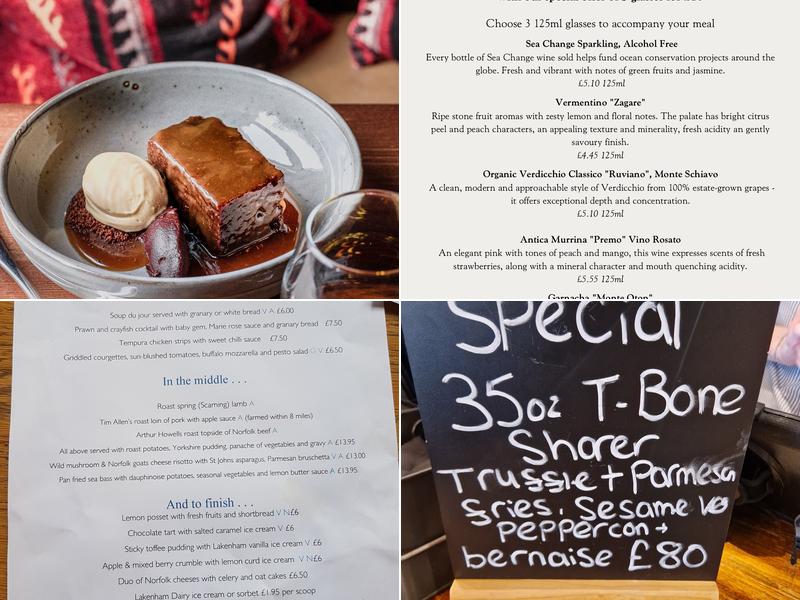 Choose 3 125ml glasses to accompany your meal
Sea Change Sparkling, Alcohol Free
Every bottle of Sea Change wine sold helps fund ocean conservation projects around the
globe. Fresh and vibrant with notes of green fruits and jasmine.
£5.10 125ml
Vermentino "Zagare"
Ripe stone fruit aromas with zesty lemon and floral notes. The palate has bright citrus
peel and peach characters, an appealing texture and minerality, fresh acidity an gently
savoury finish.
£4.45 125ml
Organic Verdicchio Classico "Ruviano", Monte Schiavo
A clean, modern and approachable style of Verdicchio from 100% estate-grown grapes -
it offers exceptional depth and concentration.
£5.10 125ml
Antica Murrina "Premo" Vino Rosato
An elegant pink with tones of peach and mango, this wine expresses scents of fresh
strawberries, along with a mineral character and mouth quenching acidity.
£5.55 125ml
Garnacha "Monte Oton"
Soup du jour served with granary or white bread V A £6.00
Prawn and crayfish cocktail with baby gem, Marie rose sauce and granary bread £7.50
Tempura chicken strips with sweet chilli sauce £7.50
Griddled courgettes, sun-blushed tomatoes, buffalo mozzarella and pesto salad G V £6.50
In the middle . . .
Roast spring (Scarning) lamb A
Tim Allen's roast loin of pork with apple sauce A (farmed within 8 miles)
Arthur Howells roast topside of Norfolk beef A
All above served with roast potatoes, Yorkshire pudding, panache of vegetables and gravy A £13.95
Wild mushroom & Norfolk goats cheese risotto with St Johns asparagus, Parmesan bruschetta V A £13.00
Pan fried sea bass with dauphinoise potatoes, seasonal vegetables and lemon butter sauce A £13.95
And to finish . . .
Lemon posset with fresh fruits and shortbread V N£6
Chocolate tart with salted caramel ice cream V £6
Sticky toffee pudding with Lakenham vanilla ice cream V £6
Apple & mixed berry crumble with lemon curd ice cream V N£6
Duo of Norfolk cheeses with celery and oat cakes £6.50
Lakenham Dairy ice cream or sorbet £1.95 per scoop
Special
35oz T-Bone
Sharer
Trussle + Parmesa
fries, Sesame
PepperCorn +
bernaise £80